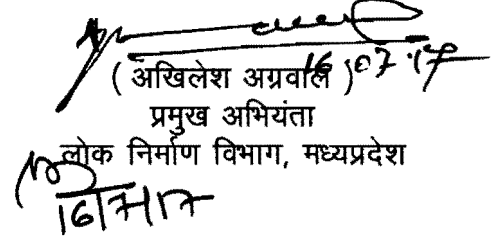 ( अखिलेश अग्रवाल ) 16.07.17
प्रमुख अभियंता
लोक निर्माण विभाग, मध्यप्रदेश
16/7/17